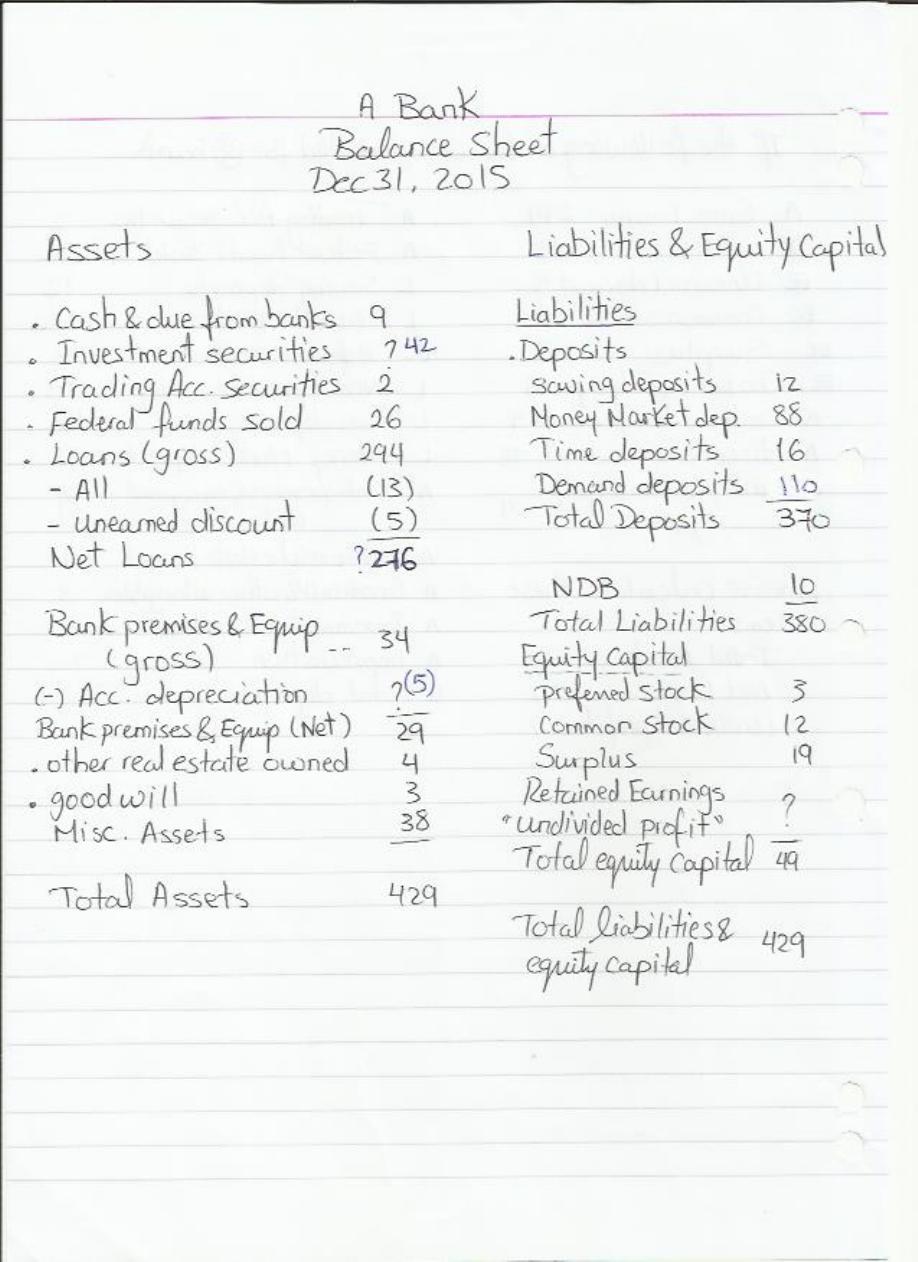 A Bank
Balance Sheet
Dec 31, 2015
Assets
. Cash & due from banks 9
. Investment securities ? 42
. Trading Acc. securities 2
. Federal funds sold 26
. Loans (gross) 294
- All (13)
- Unearned discount (5)
Net Loans ? 276
Bank premises & Equip -- 34
(gross)
(-) Acc. depreciation ? (5)
Bank premises & Equip (Net) 29
. other real estate owned 4
. good will 3
Misc. Assets 38
Total Assets 429
Liabilities & Equity Capital
Liabilities
. Deposits
saving deposits 12
Money Market dep. 88
Time deposits 16
Demand deposits 110
Total Deposits 370
NDB 10
Total Liabilities 380
Equity Capital
preferred stock 3
Common Stock 12
Surplus 19
Retained Earnings
"undivided profit" ?
Total equity capital 49
Total liabilities &
equity capital 429